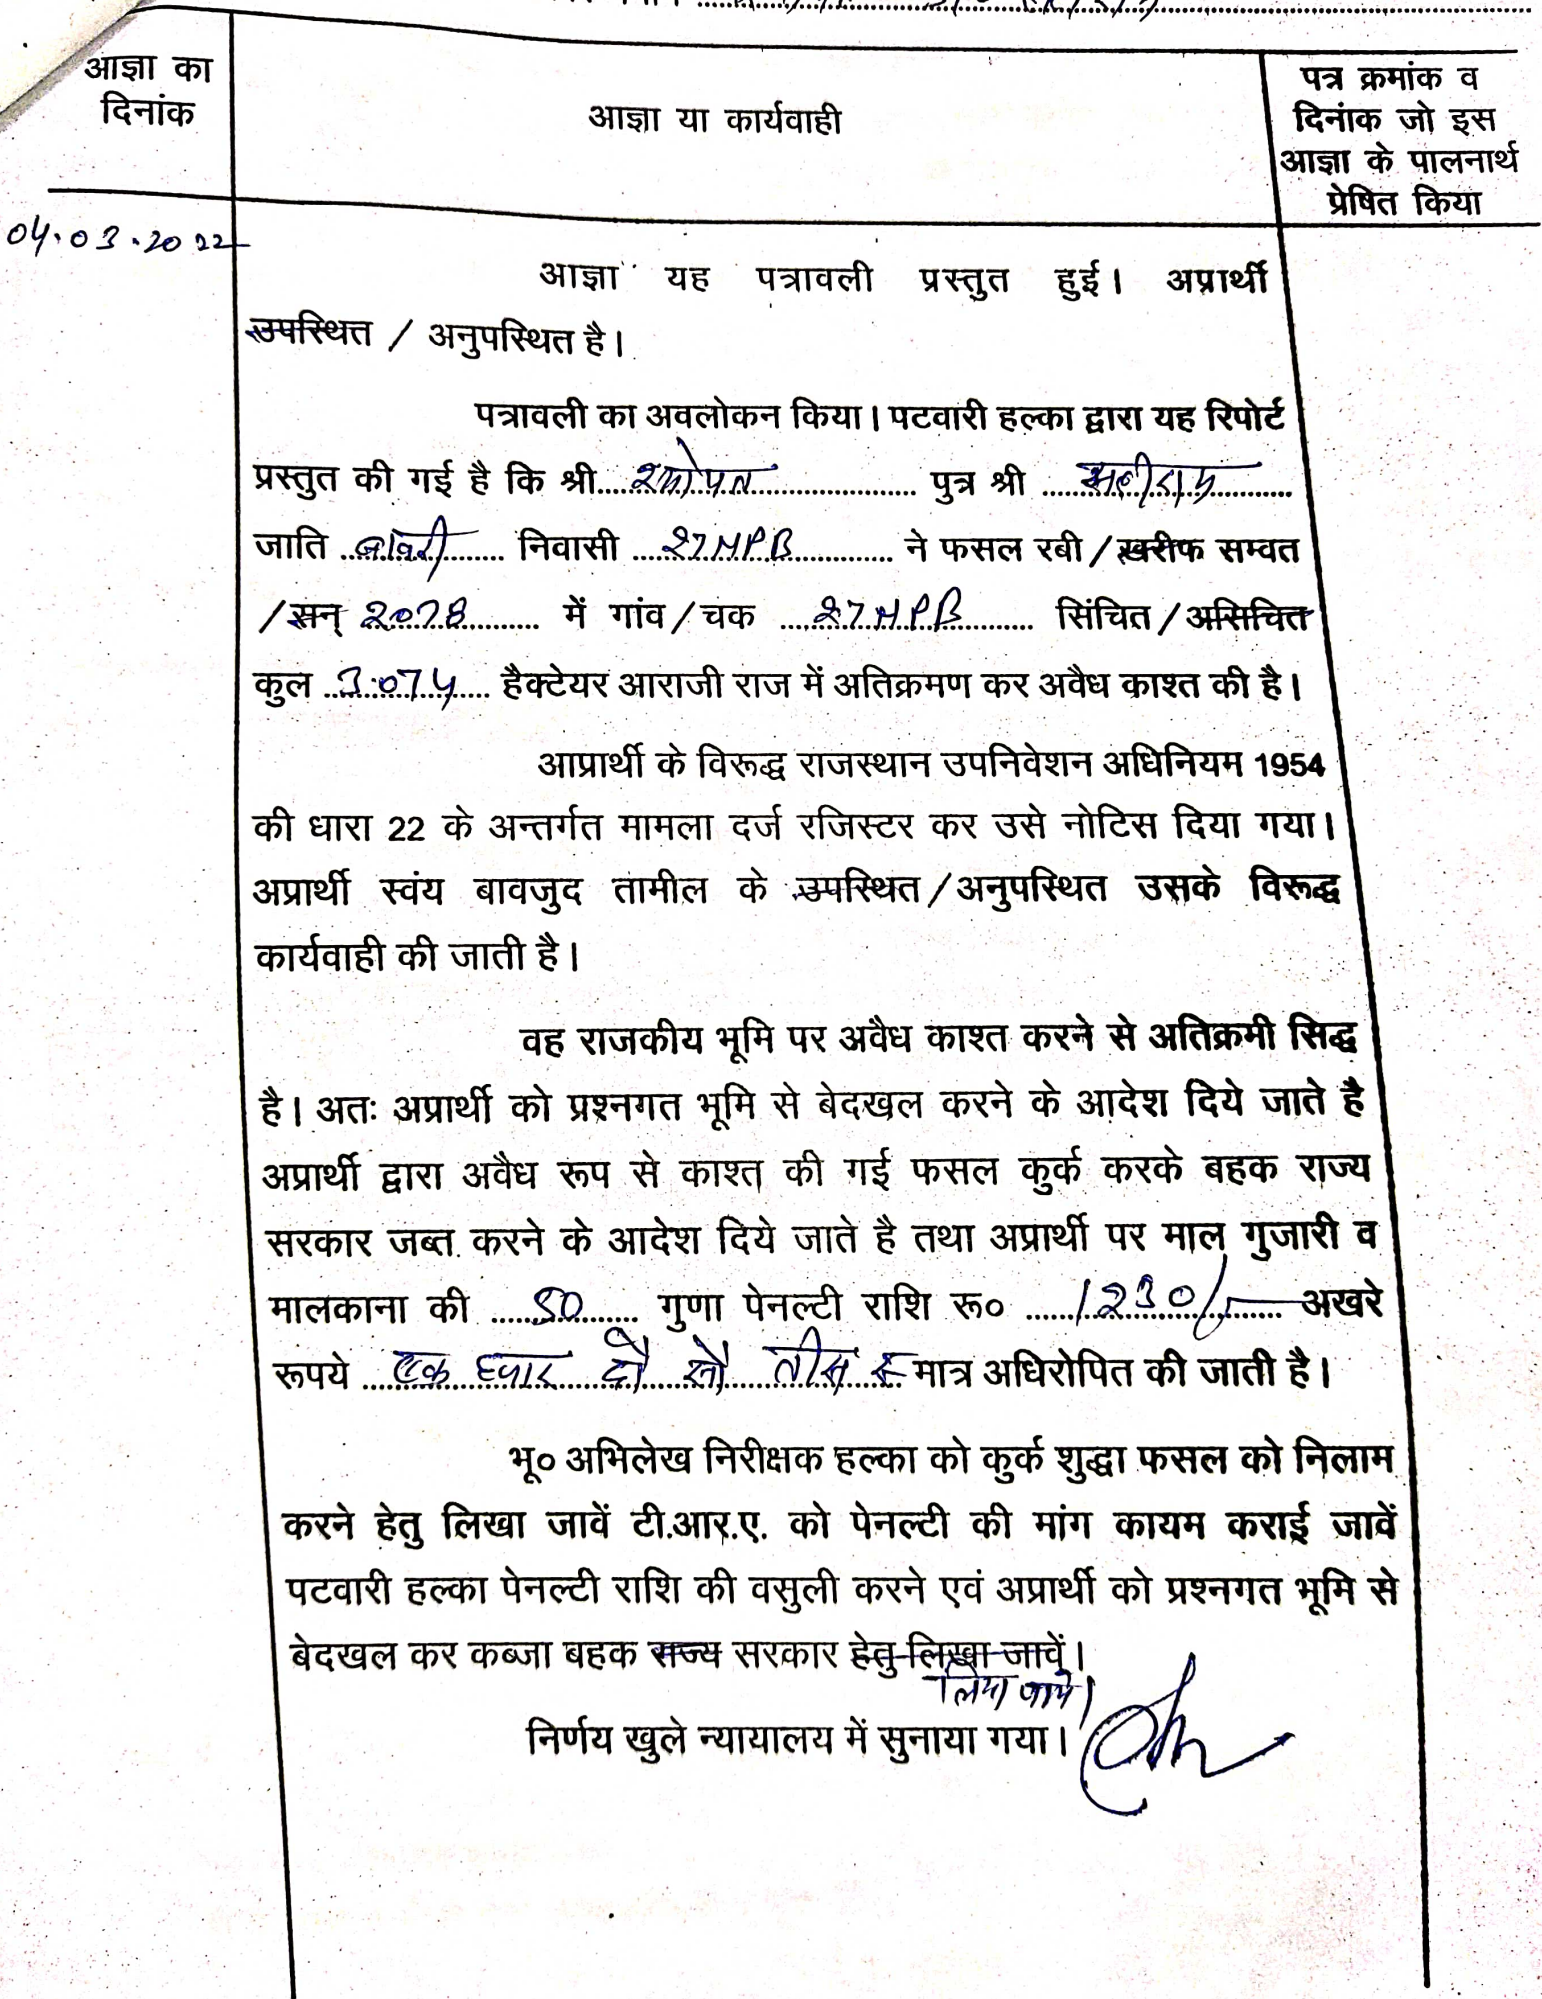 आज्ञा का
दिनांक
आज्ञा या कार्यवाही
पत्र क्रमांक व
दिनांक जो इस
आज्ञा के पालनार्थ
प्रेषित किया
04.03.2022
आज्ञा यह पत्रावली प्रस्तुत हुई। अप्रार्थी
उपस्थित / अनुपस्थित है।
पत्रावली का अवलोकन किया। पटवारी हल्का द्वारा यह रिपोर्ट
प्रस्तुत की गई है कि श्री .......... पुत्र श्री ..........
जाति बावरी निवासी 27MPB ने फसल रबी / खरीफ सम्वत
/ सन् 2078 में गांव / चक 27MPB सिंचित / असिचित
कुल 3.074 हैक्टेयर आराजी राज में अतिक्रमण कर अवैध काश्त की है।
आप्रार्थी के विरूद्ध राजस्थान उपनिवेशन अधिनियम 1954
की धारा 22 के अन्तर्गत मामला दर्ज रजिस्टर कर उसे नोटिस दिया गया।
अप्रार्थी स्वंय बावजुद तामील के उपस्थित / अनुपस्थित उसके विरूद्ध
कार्यवाही की जाती है।
वह राजकीय भूमि पर अवैध काश्त करने से अतिक्रमी सिद्ध
है। अतः अप्रार्थी को प्रश्नगत भूमि से बेदखल करने के आदेश दिये जाते है
अप्रार्थी द्वारा अवैध रूप से काश्त की गई फसल कुर्क करके बहक राज्य
सरकार जब्त करने के आदेश दिये जाते है तथा अप्रार्थी पर माल गुजारी व
मालकाना की 50 गुणा पेनल्टी राशि रू० 1230/- अखरे
रूपये एक हजार दो सौ तीस रू मात्र अधिरोपित की जाती है।
भू० अभिलेख निरीक्षक हल्का को कुर्क शुद्धा फसल को निलाम
करने हेतु लिखा जावें टी.आर.ए. को पेनल्टी की मांग कायम कराई जावें
पटवारी हल्का पेनल्टी राशि की वसुली करने एवं अप्रार्थी को प्रश्नगत भूमि से
बेदखल कर कब्जा बहक राज्य सरकार हेतु लिखा जावें।
लिया जाये।
निर्णय खुले न्यायालय में सुनाया गया।